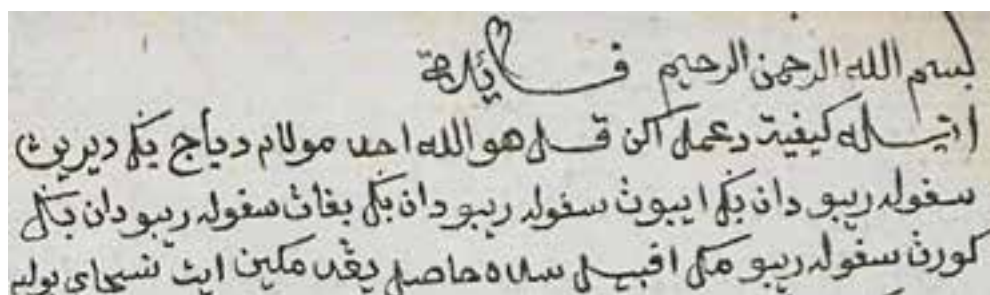 بسم الله الرحمن الرحيم فائدة
اتيله كيفية دعملكن قل هو الله احد مولام دباج بݢي ديرين
سڤوله ريبو دان بݢي ايبوڽ سڤوله ريبو دان بݢي بڤاڽ سڤوله ريبو دان بݢي
ݢورڽ سڤوله ريبو مك اڤبيل سده حاصل يڠد مكين ايت نسچاي بوله